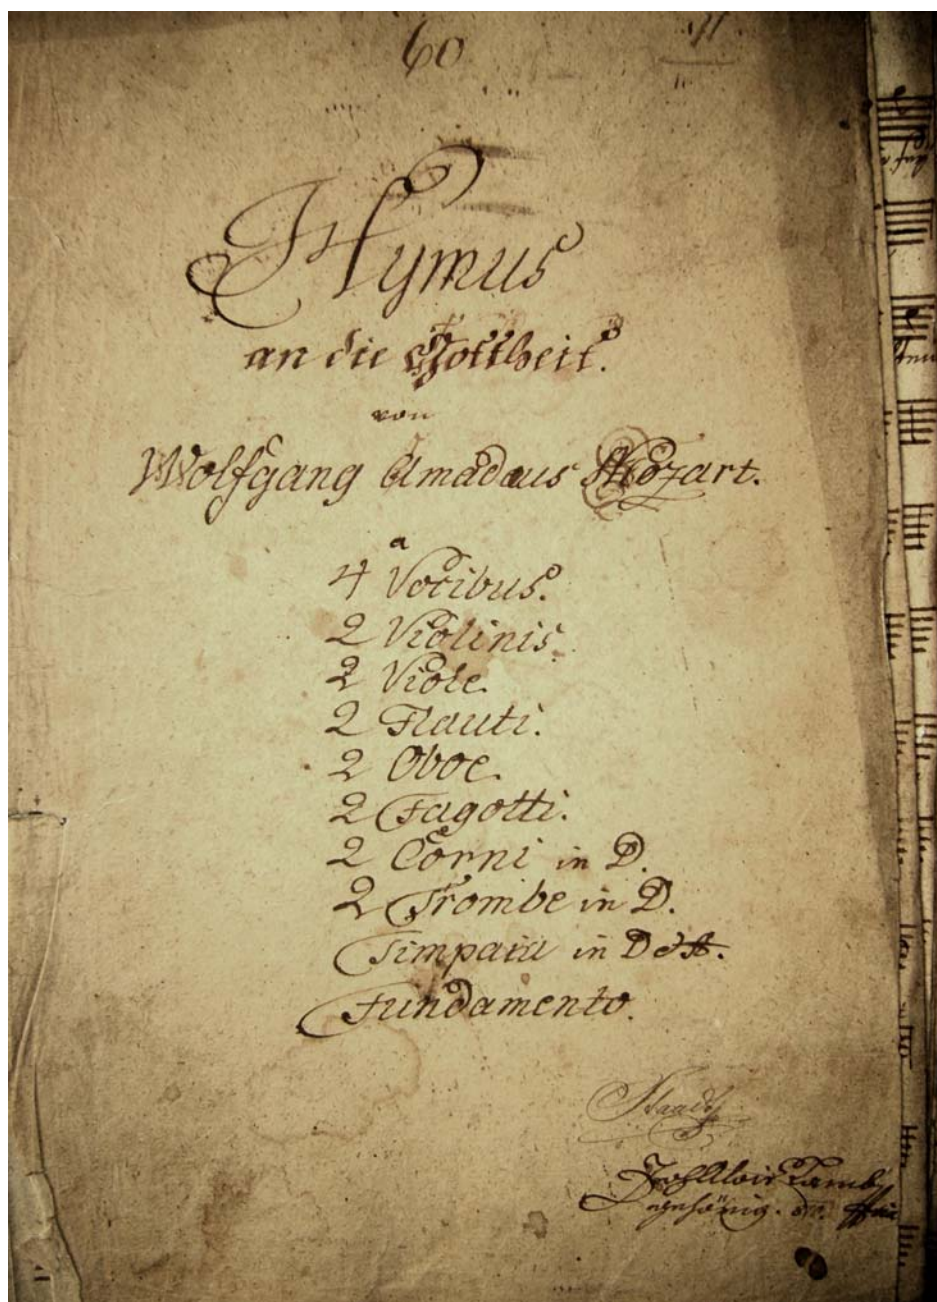 60
Hymus
an die Gottheit.
von
Wolfgang Amadaus Mozart.
a
4 Vocibus.
2 Violinis
2 Viole.
2 Flauti.
2 Oboe.
2 Fagotti.
2 Corni in D.
2 Trombe in D.
Timpani in D et A.
Fundamento.
gehörig.